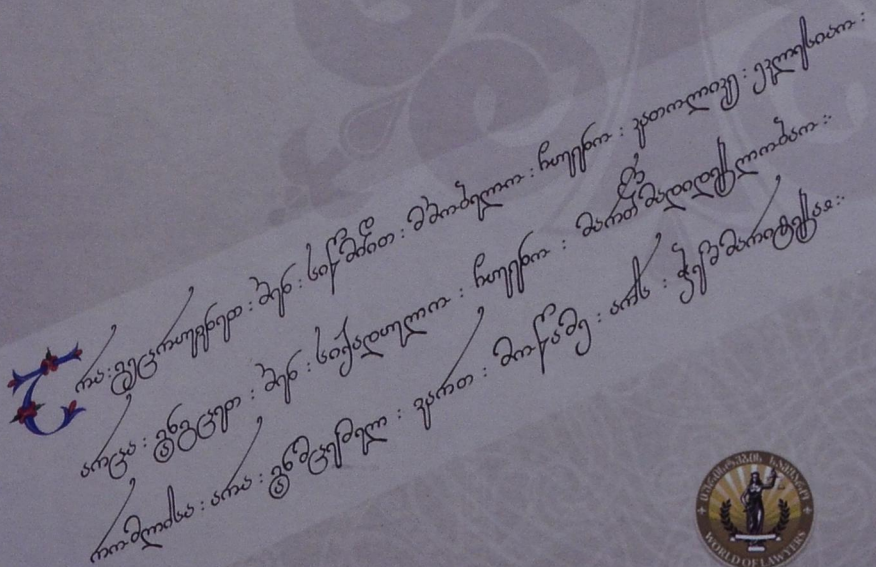 არა: გეცრუვნეთ: შენ: სიწმიდით: მშობელო: ჩუენო: კათოლიკე: ეკლესიაო:
არცა: განგცეთ: შენ: სიქადულო: ჩუენო: მართლმადიდებლობაო:
რომლისა: არა: განმცემელ: ვართ: მოწამე: არს: ჭეშმარიტებაჲ:
იურისტების სამყარო
WORLD OF LAWYERS